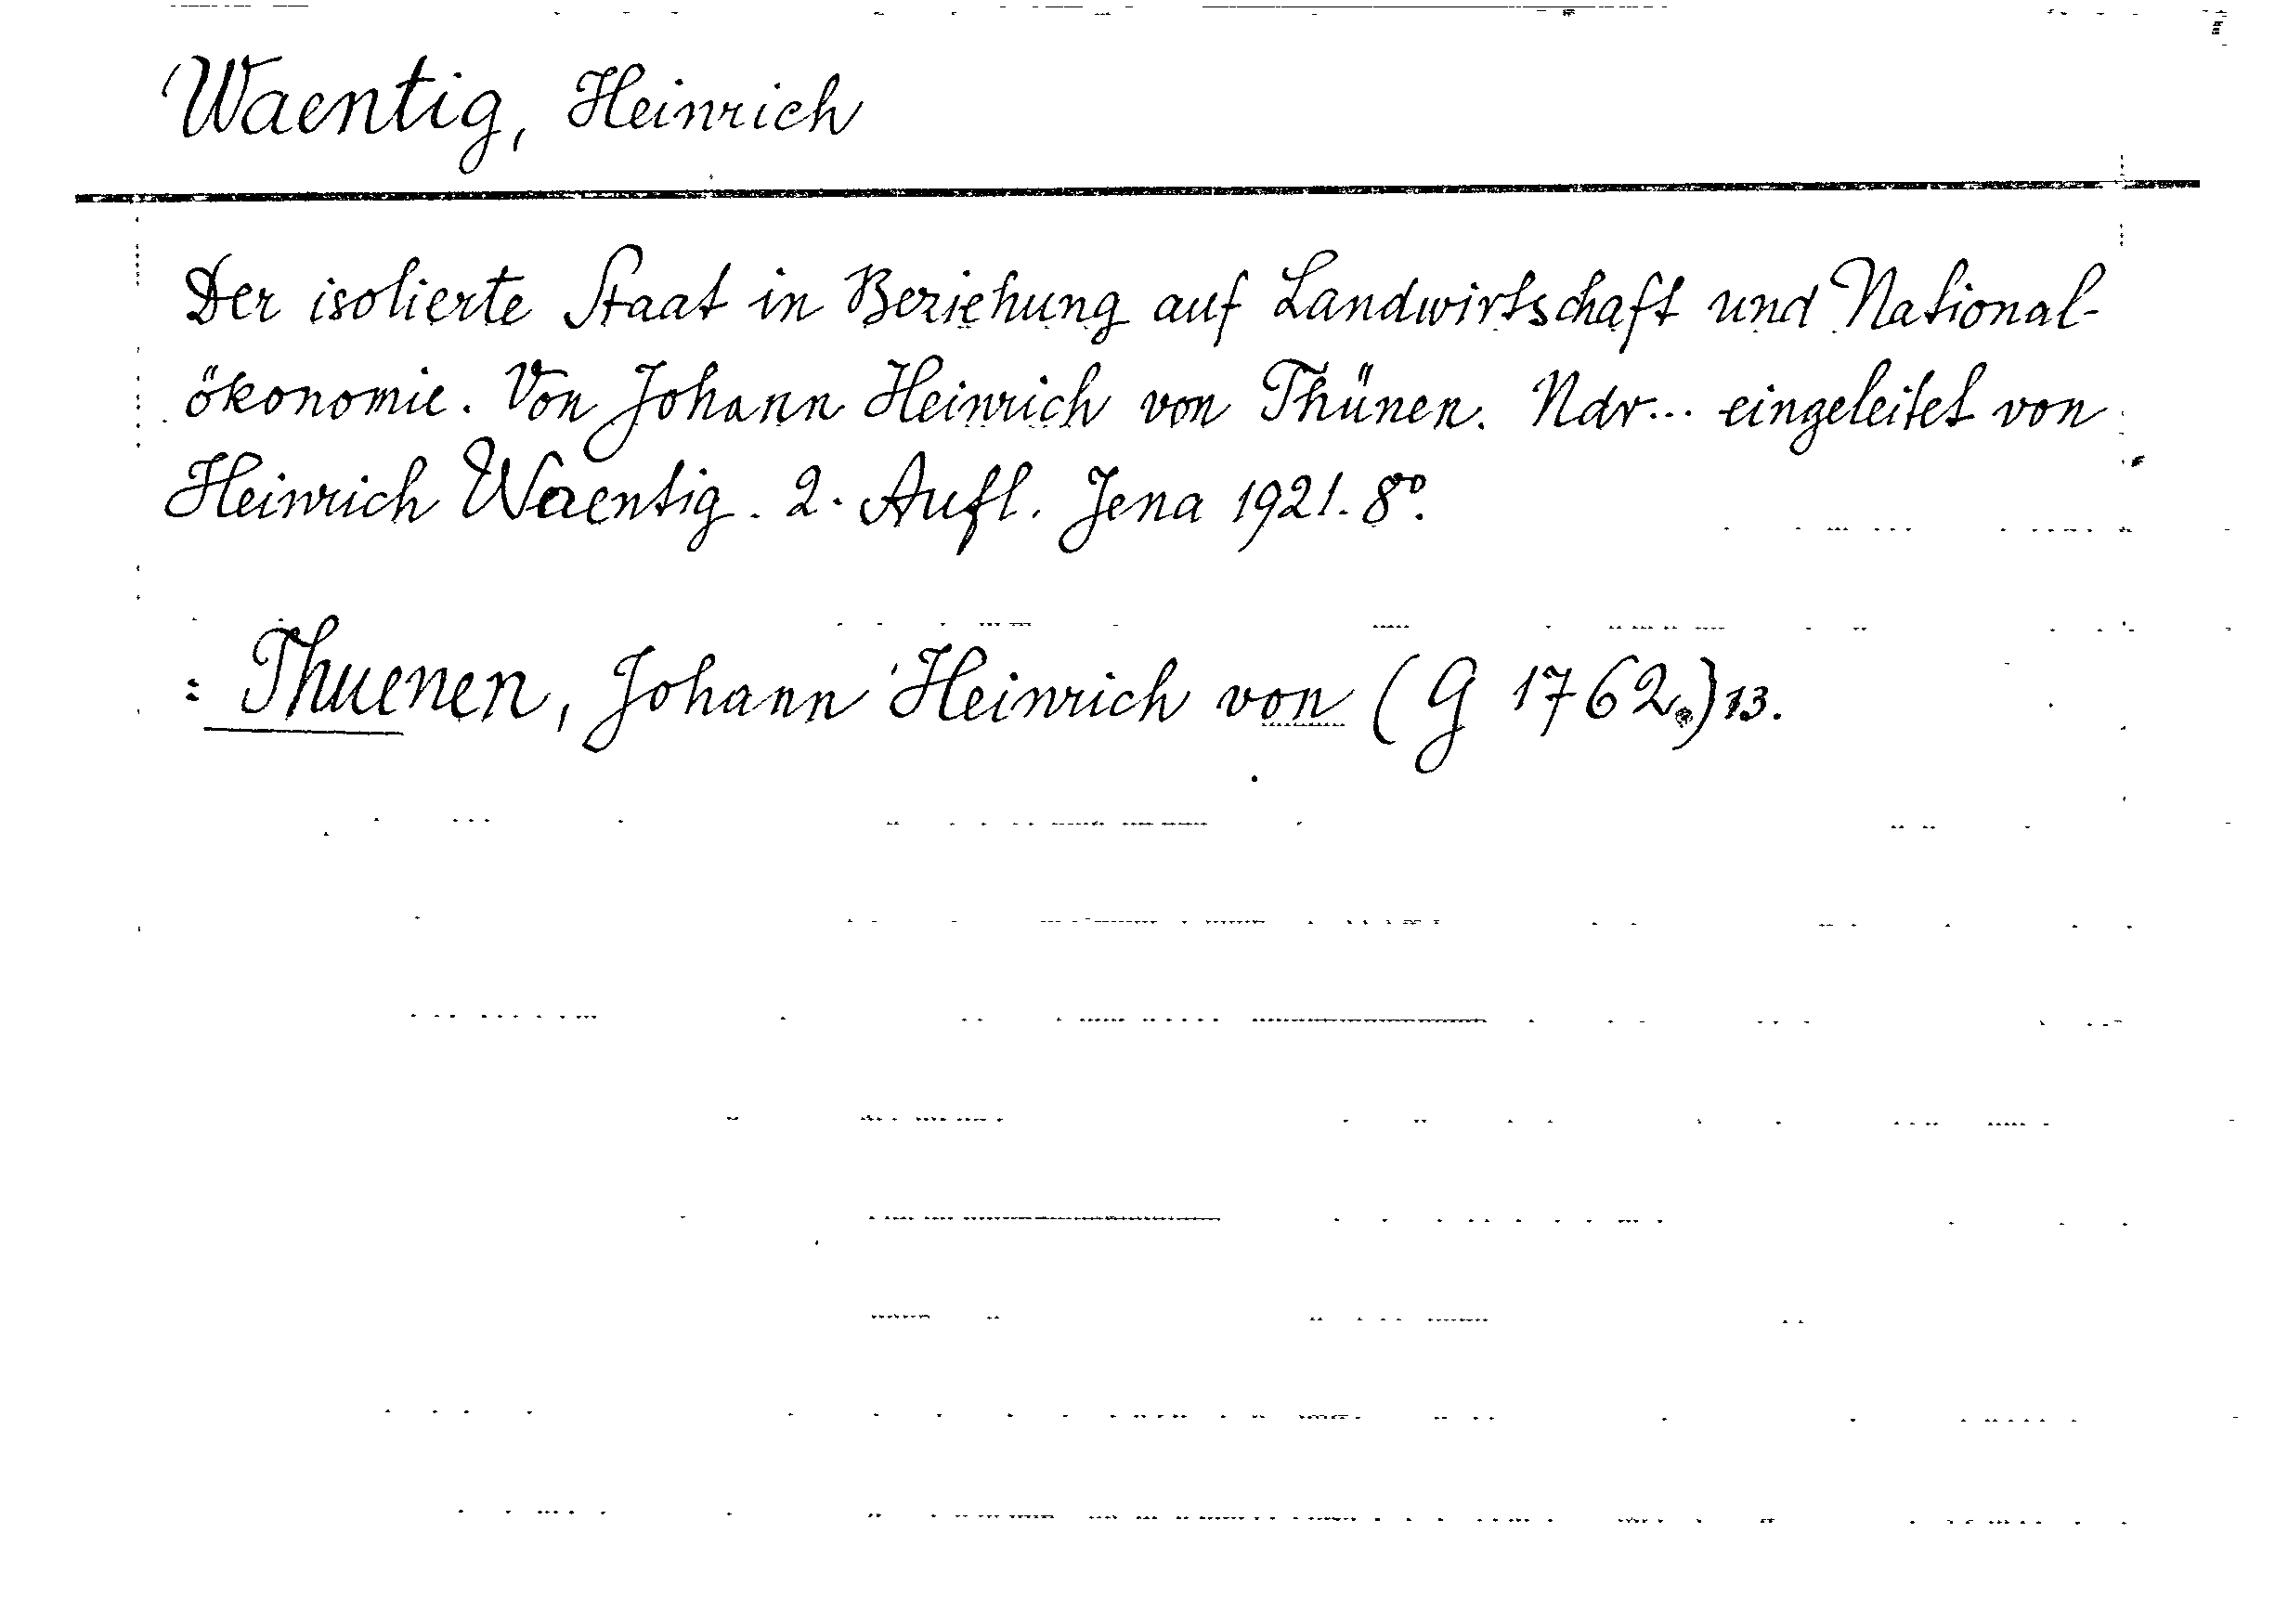 Waentig, Heinrich
Der isolierte Staat in Beziehung auf Landwirtschaft und National-
ökonomie. Von Johann Heinrich von Thünen. Ndr... eingeleitet von
Heinrich Waentig. 2. Aufl. Jena 1921. 8°.
= Thuenen, Johann Heinrich von (G 1762.) 13.